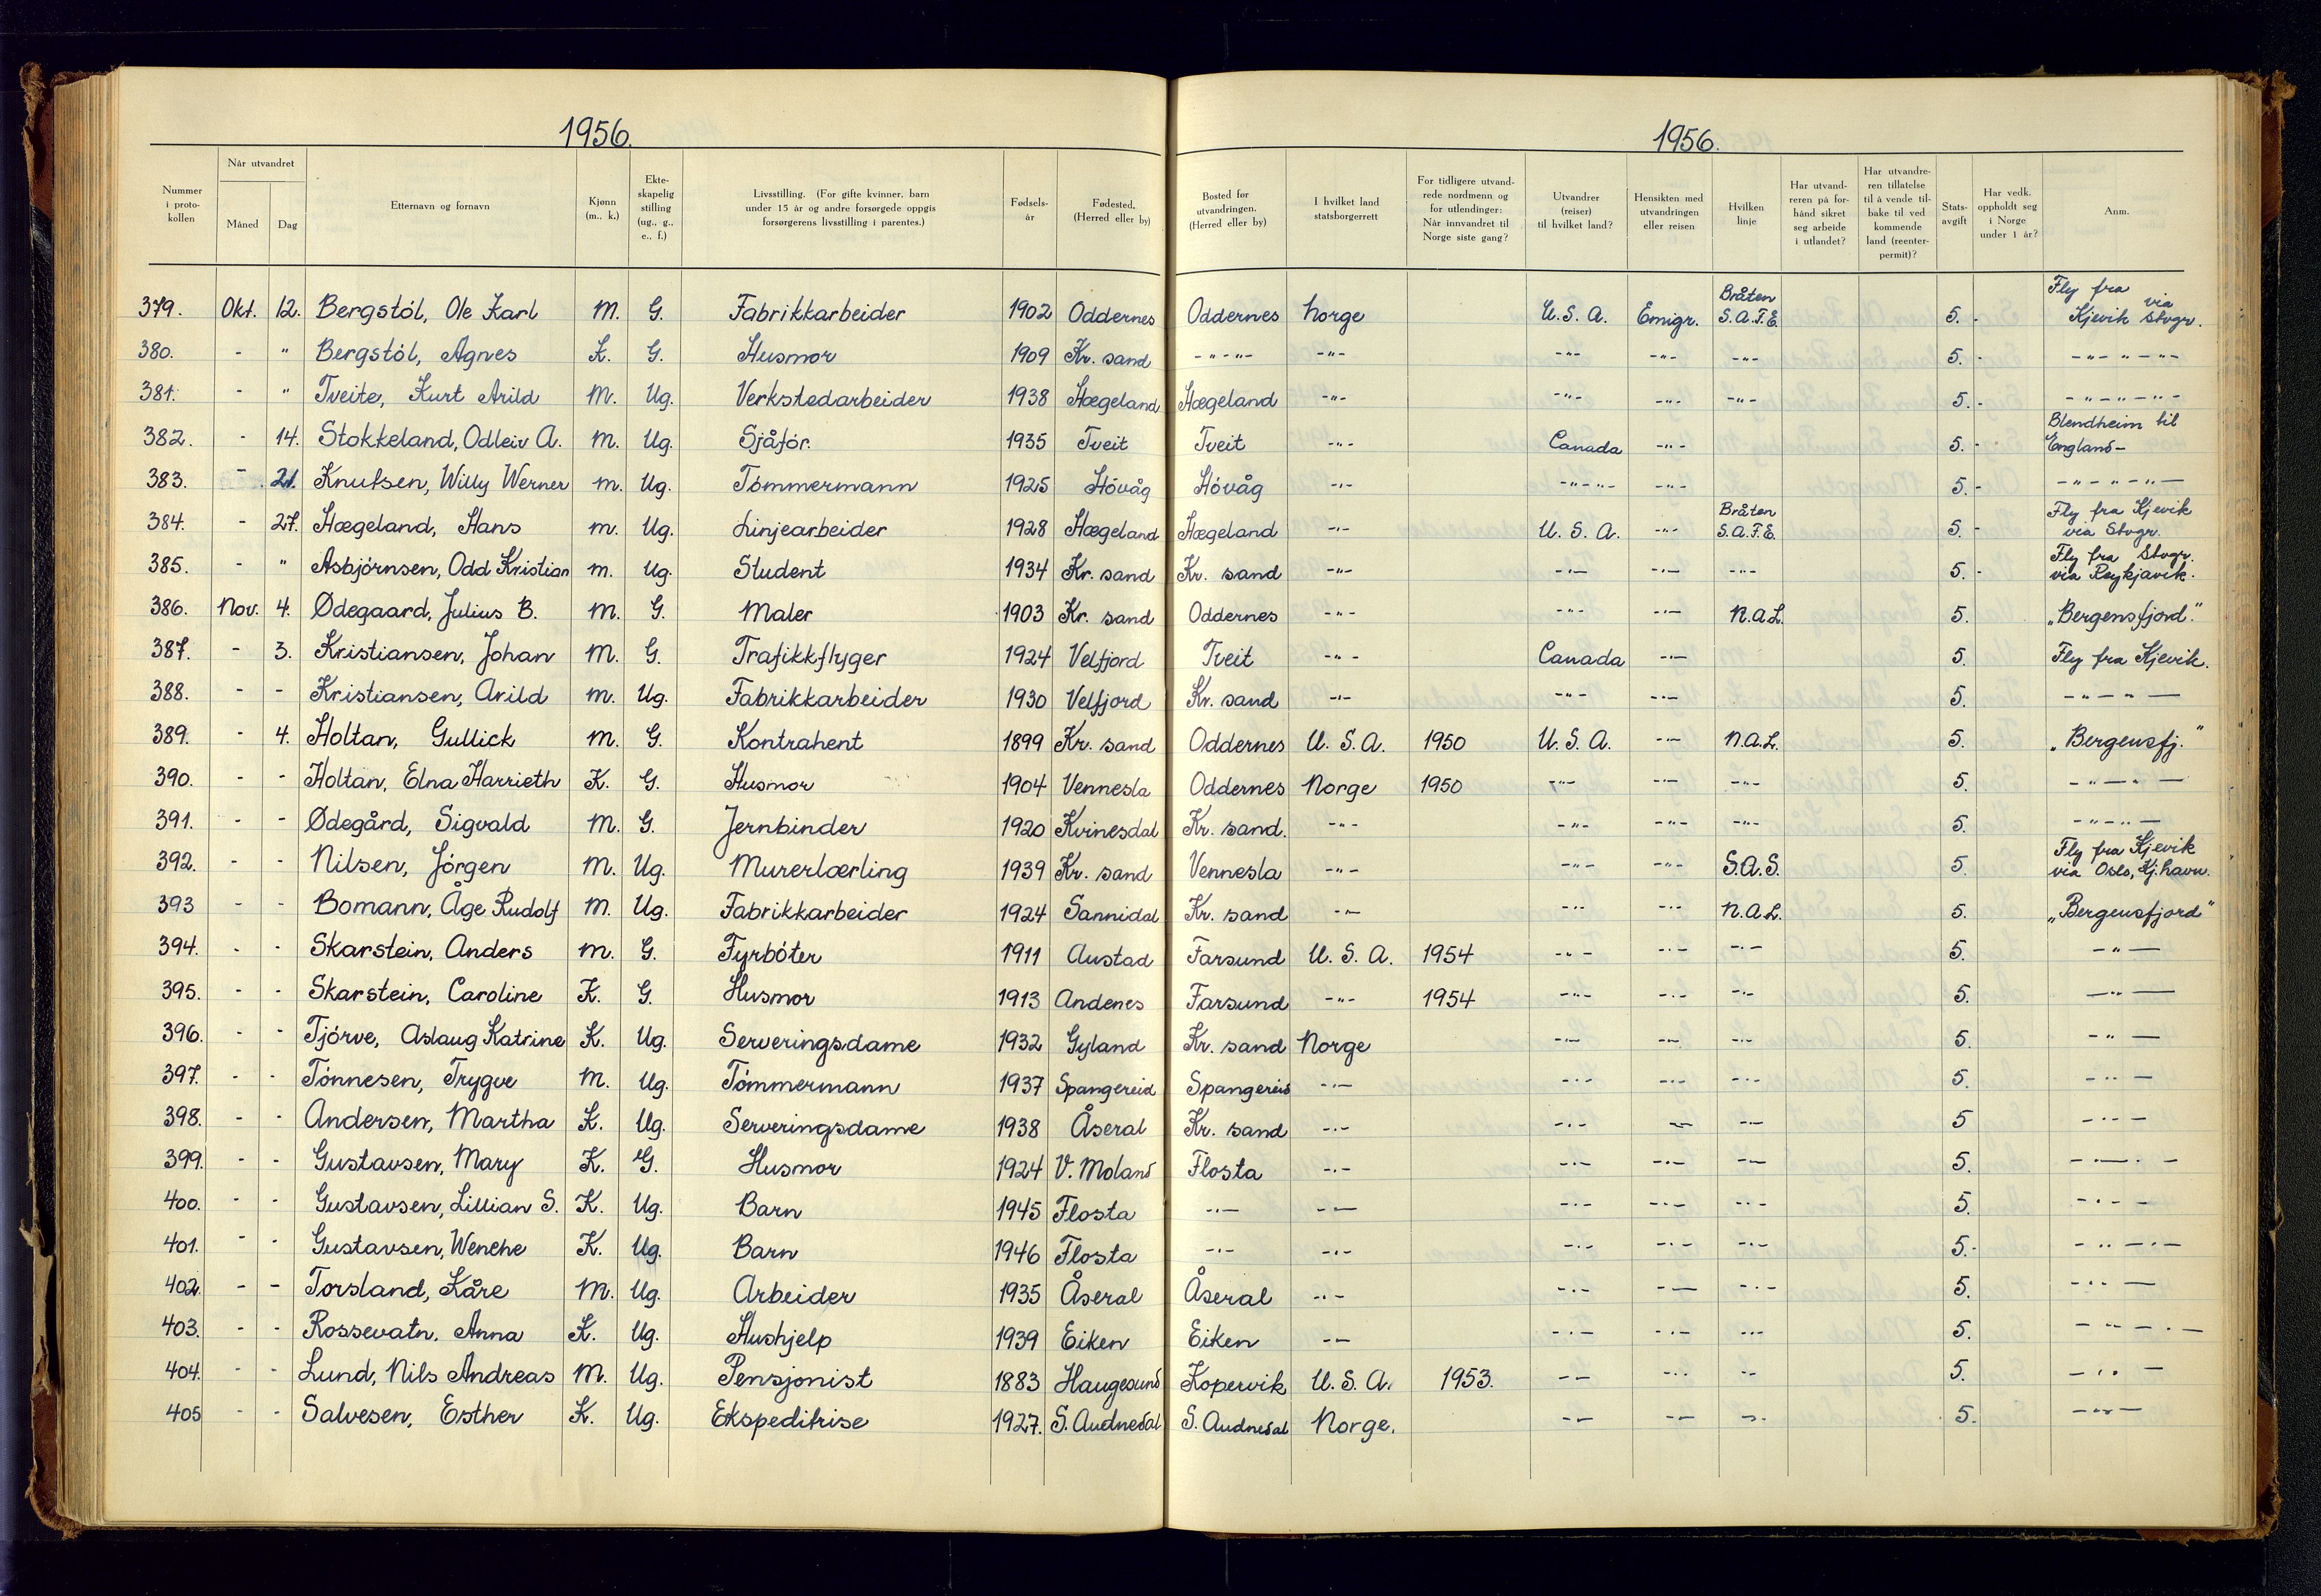 1956.
1956.
Nummer i proto-kollen
Når utvandret
Måned
Dag
Etternavn og fornavn
Kjønn (m., k.)
Ekte-skapelig stilling (ug., g., e., f.)
Livsstilling. (For gifte kvinner, barn under 15 år og andre forsørgede oppgis forsørgerens livsstilling i parentes.)
Fødsels-år
Fødested. (Herred eller by)
Bosted før utvandringen. (Herred eller by)
I hvilket land statsborgerrett
For tidligere utvand-rede nordmenn og for utlendinger: Når innvandret til Norge siste gang?
Utvandrer (reiser) til hvilket land?
Hensikten med utvandringen eller reisen
Hvilken linje
Har utvand-reren på for-hånd sikret seg arbeide i utlandet?
Har utvandre-ren tillatelse til å vende til-bake til ved kommende land (reenter-permit)?
Stats-avgift
Har vedk. oppholdt seg i Norge under 1 år?
Anm.
379. Okt. 12. Bergstöl, Ole Karl M. G. Fabrikkarbeider 1902 Oddernes Oddernes Norge U.S.A. Emigr. Bråten S.A.F.E. 5.- Fly fra Kjevik via Stvgr.
380. - " Bergstöl, Agnes K. G. Husmor 1909 Kr. sand -"-"- -"- -"- -"- -"- 5.- -"-"-"-
381. - " Tveite, Kurt Arild M. Ug. Verkstedarbeider 1938 Hægeland Hægeland -"- -"- -"- -"- 5.- -"-"-"-
382. - 14. Stokkeland, Odleiv A. M. Ug. Sjåför. 1935 Tveit Tveit -"- Canada -"- 5.- Blendheim til England-
383. - 21. Knutsen, Willy Werner M. Ug. Tömmermann 1925 Hövåg Hövåg -"- -"-"- -"- 5.- -"-"-"-
384. - 27. Hægeland, Hans M. Ug. Linjearbeider 1928 Hægeland Hægeland -"- U.S.A. -"- Bråten S.A.F.E. 5.- Fly fra Kjevik via Stvgr.
385. - " Asbjörnsen, Odd Kristian M. Ug. Student 1934 Kr. sand Kr. sand -"- -"- -"- -"- 5.- Fly fra Stvgr. via Reykjavik.
386. Nov. 4. Ødegaard, Julius B. M. G. Maler 1903 Kr. sand Oddernes -"- -"- -"- N.A.L. 5. „Bergensfjord."
387. - 3. Kristiansen, Johan M. G. Trafikkflyger 1924 Velfjord Tveit -"- Canada -"- 5. Fly fra Kjevik.
388. - - Kristiansen, Arild M. Ug. Fabrikkarbeider 1930 Velfjord Kr. sand -"- -"- -"- 5. -"-"-
389. - 4. Holtan, Gullick M. G. Kontrahent 1899 Kr. sand Oddernes U.S.A. 1950 U.S.A. -"- N.A.L. 5. „Bergensfj."
390. - - Holtan, Elna Harrieth K. G. Husmor 1904 Vennesla Oddernes Norge 1950 -"- -"- -"- 5. -"-"-
391. - - Ødegård, Sigvald M. G. Jernbinder 1920 Kvinesdal Kr. sand. -"- -"- -"- -"- 5. -"-"-
392. - - Nilsen, Jörgen M. Ug. Murerlærling 1939 Kr. sand Vennesla -"- -"- -"- S.A.S. 5. Fly fra Kjevik via Oslo, Kj.havn.
393 - - Bomann, Åge Rudolf M. Ug. Fabrikkarbeider 1924 Sannidal Kr. sand -"- -"- -"- N.A.L. 5. „Bergensfjord"
394. - - Skarstein, Anders M. G. Fyrböter 1911 Austad Farsund U.S.A. 1954 -"- -"- -"- 5. -"-
395. - - Skarstein, Caroline K. G. Husmor 1913 Andenes Farsund -"- 1954 -"- -"- -"- 5. -"-
396. - - Tjörve, Aslaug Katrine K. Ug. Serveringsdame 1932 Gyland Kr. sand Norge -"- -"- -"- 5. -"-
397. - - Tönnesen, Trygve M. Ug. Tömmermann 1937 Spangereid Spangereid -"- -"- -"- -"- 5. -"-
398. - - Andersen, Martha K. Ug. Serveringsdame 1938 Åseral Kr. sand -"- -"- -"- -"- 5 -"-
399. - - Gustavsen, Mary K. G. Husmor 1924 V. Moland Flosta -"- -"- -"- -"- 5. -"-"-
400. - - Gustavsen, Lillian S. K. Ug. Barn 1945 Flosta -"- -"- -"- -"- -"- 5. -"-
401. - - Gustavsen, Wenche K. Ug. Barn 1946 Flosta -"- -"- -"- -"- -"- 5.- -"-"-
402. - - Torsland, Kåre M. Ug. Arbeider 1935 Åseral Åseral -"- -"- -"- -"- 5. -"-
403. - - Rossevatn. Anna K. Ug. Hushjelp 1939 Eiken Eiken -"- -"- -"- -"- 5. -"-"-
404. - - Lund, Nils Andreas M. Ug. Pensjonist 1883 Haugesund Kopervik U.S.A. 1953. -"- -"- -"- 5. -"-
405 - - Salvesen, Esther K. Ug. Ekspeditrise 1927. S. Audnedal S. Audnedal Norge. -"- -"- -"- 5. -"-